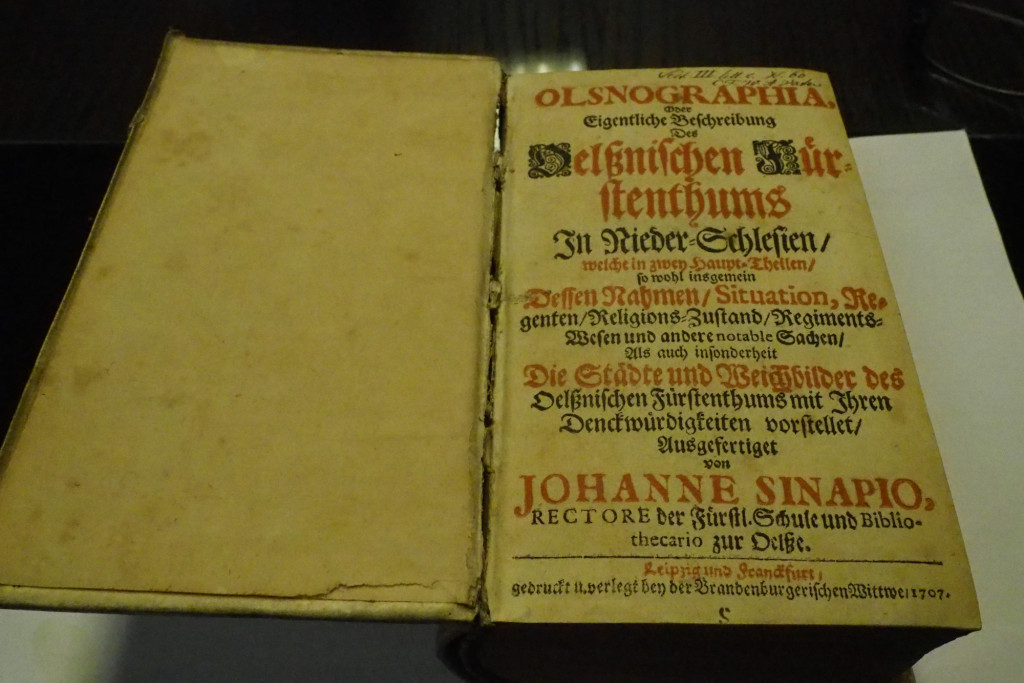 OLSNOGRAPHIA,
Oder
Eigentliche Beschreibung
Des
Oelßnischen Für-
stenthums
In Nieder-Schlesien/
welche in zwey Haupt-Theilen/
so wohl insgemein
Dessen Nahmen/ Situation, Re-
genten/Religions-Zustand/Regiments-
Wesen und andere notable Sachen/
Als auch insonderheit
Die Städte und Weichbilder des
Oelßnischen Fürstenthums mit Ihren
Denckwürdigkeiten vorstellet/
Ausgefertiget
von
JOHANNE SINAPIO,
RECTORE der Fürstl. Schule und Biblio-
thecario zur Oelße.
Leipzig und Franckfurt/
gedruckt u. verlegt bey der Brandenburgerischen Wittwe/1707.